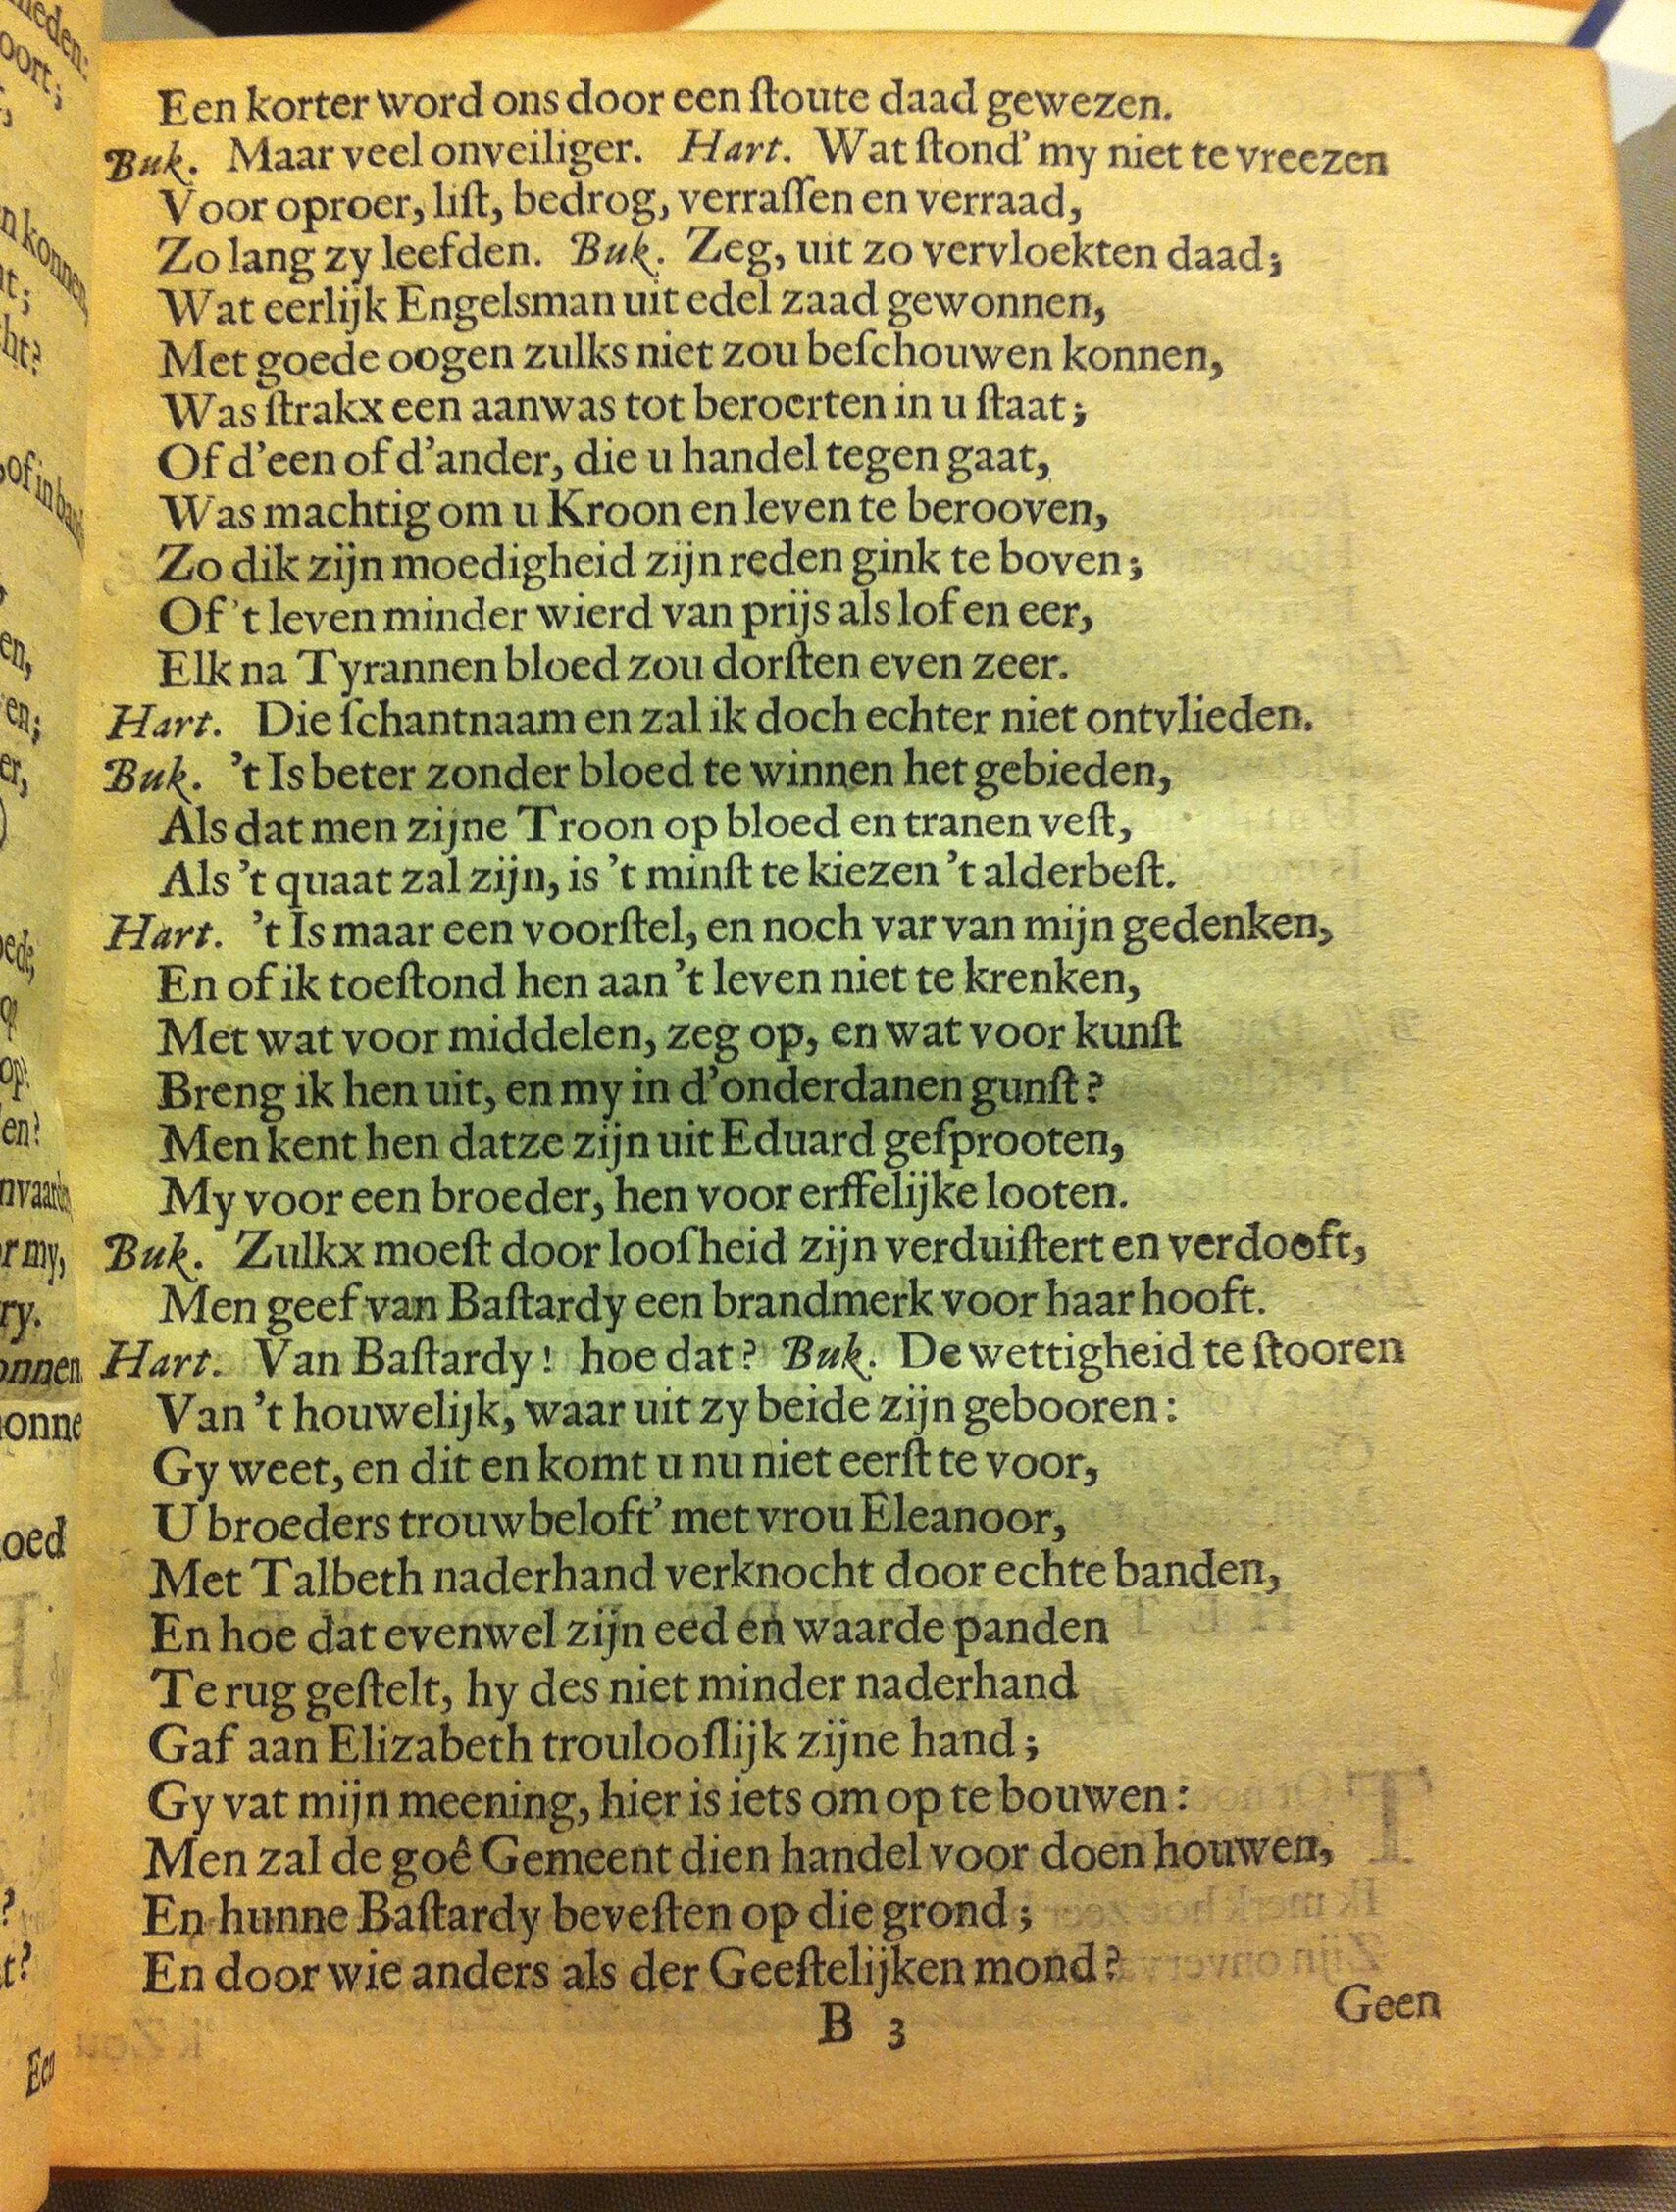 Een korter word ons door een ſtoute daad gewezen.
Buk. Maar veel onveiliger. Hart. Wat ſtond' my niet te vreezen
Voor oproer, liſt, bedrog, verraſſen en verraad,
Zo lang zy leefden. Buk. Zeg, uit zo vervloekten daad;
Wat eerlijk Engelsman uit edel zaad gewonnen,
Met goede oogen zulks niet zou beſchouwen konnen,
Was ſtrakx een aanwas tot beroerten in u ſtaat;
Of d'een of d'ander, die u handel tegen gaat,
Was machtig om u Kroon en leven te berooven,
Zo dik zijn moedigheid zijn reden gink te boven;
Of 't leven minder wierd van prijs als lof en eer,
Elk na Tyrannen bloed zou dorſten even zeer.
Hart. Die ſchantnaam en zal ik doch echter niet ontvlieden.
Buk. 't Is beter zonder bloed te winnen het gebieden,
Als dat men zijne Troon op bloed en tranen veſt,
Als 't quaat zal zijn, is 't minſt te kiezen 't alderbeſt.
Hart. 't Is maar een voorſtel, en noch var van mijn gedenken,
En of ik toeſtond hen aan 't leven niet te krenken,
Met wat voor middelen, zeg op, en wat voor kunſt
Breng ik hen uit, en my in d'onderdanen gunſt?
Men kent hen datze zijn uit Eduard geſprooten,
My voor een broeder, hen voor erffelijke looten.
Buk. Zulkx moeſt door loosheid zijn verduiſtert en verdooft,
Men geef van Baſtardy een brandmerk voor haar hooft.
Hart. Van Baſtardy! hoe dat? Buk. De wettigheid te ſtooren
Van 't houwelijk, waar uit zy beide zijn gebooren:
Gy weet, en dit en komt u nu niet eerſt te voor,
U broeders trouwbeloft' met vrou Eleanoor,
Met Talbeth naderhand verknocht door echte banden,
En hoe dat evenwel zijn eed en waarde panden
Te rug geſtelt, hy des niet minder naderhand
Gaf aan Elizabeth troulooſlijk zijne hand;
Gy vat mijn meening, hier is iets om op te bouwen:
Men zal de goê Gemeent dien handel voor doen houwen,
En hunne Baſtardy beveſten op die grond;
En door wie anders als der Geeſtelijken mond?
B 3
Geen